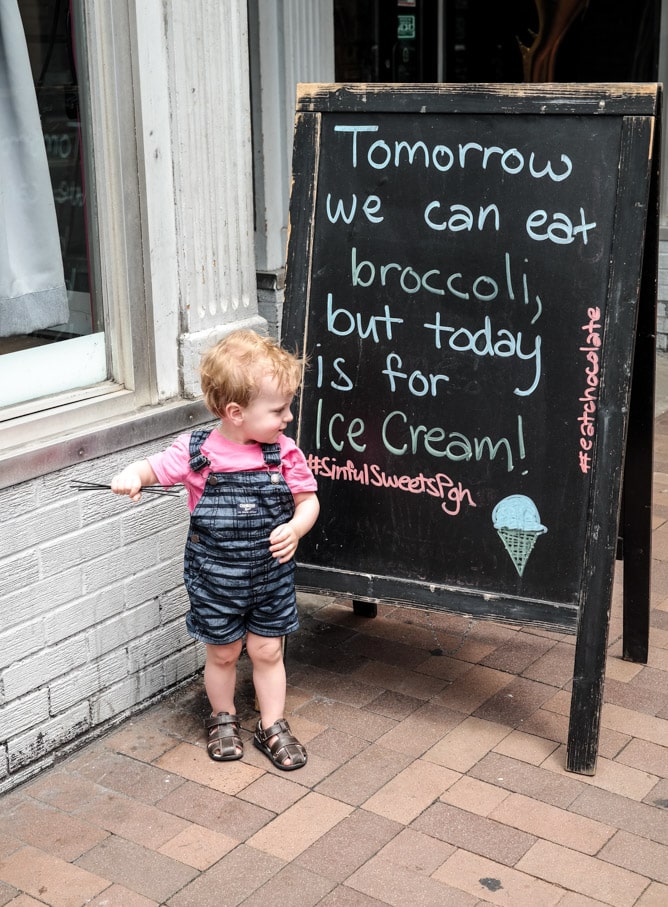 Tomorrow
we can eat
broccoli,
but today
is for
Ice Cream!
#SinfulSweetsPgh
#eatchocolate